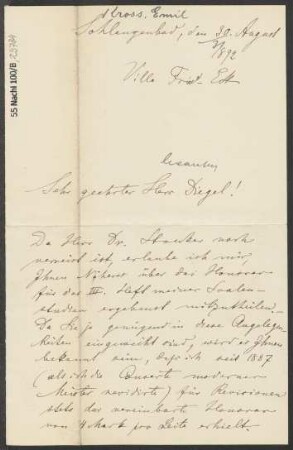 Kross, Emil
Schlangenbad, den 30. August
1892
Villa Frdr. Ek
55 Nachl 100/B
Sehr geehrter Herr Diegel!
Da Herr Dr. Strecker noch
verreist ist, erlaube ich mir,
Ihnen Näheres über das Honorar
für das III. Heft meiner Scalen-
studien ergebenst mitzutheilen.
Da Sie ja genügend in diese Angelegen-
heiten eingeweiht sind, wird es Ihnen
bekannt sein, daß ich seit 1887
(als ich die Concerte moderner
Meister revidirte) für Revisionen
stets das vereinbarte Honorar
von 4 Mark pro Seite erhielt.